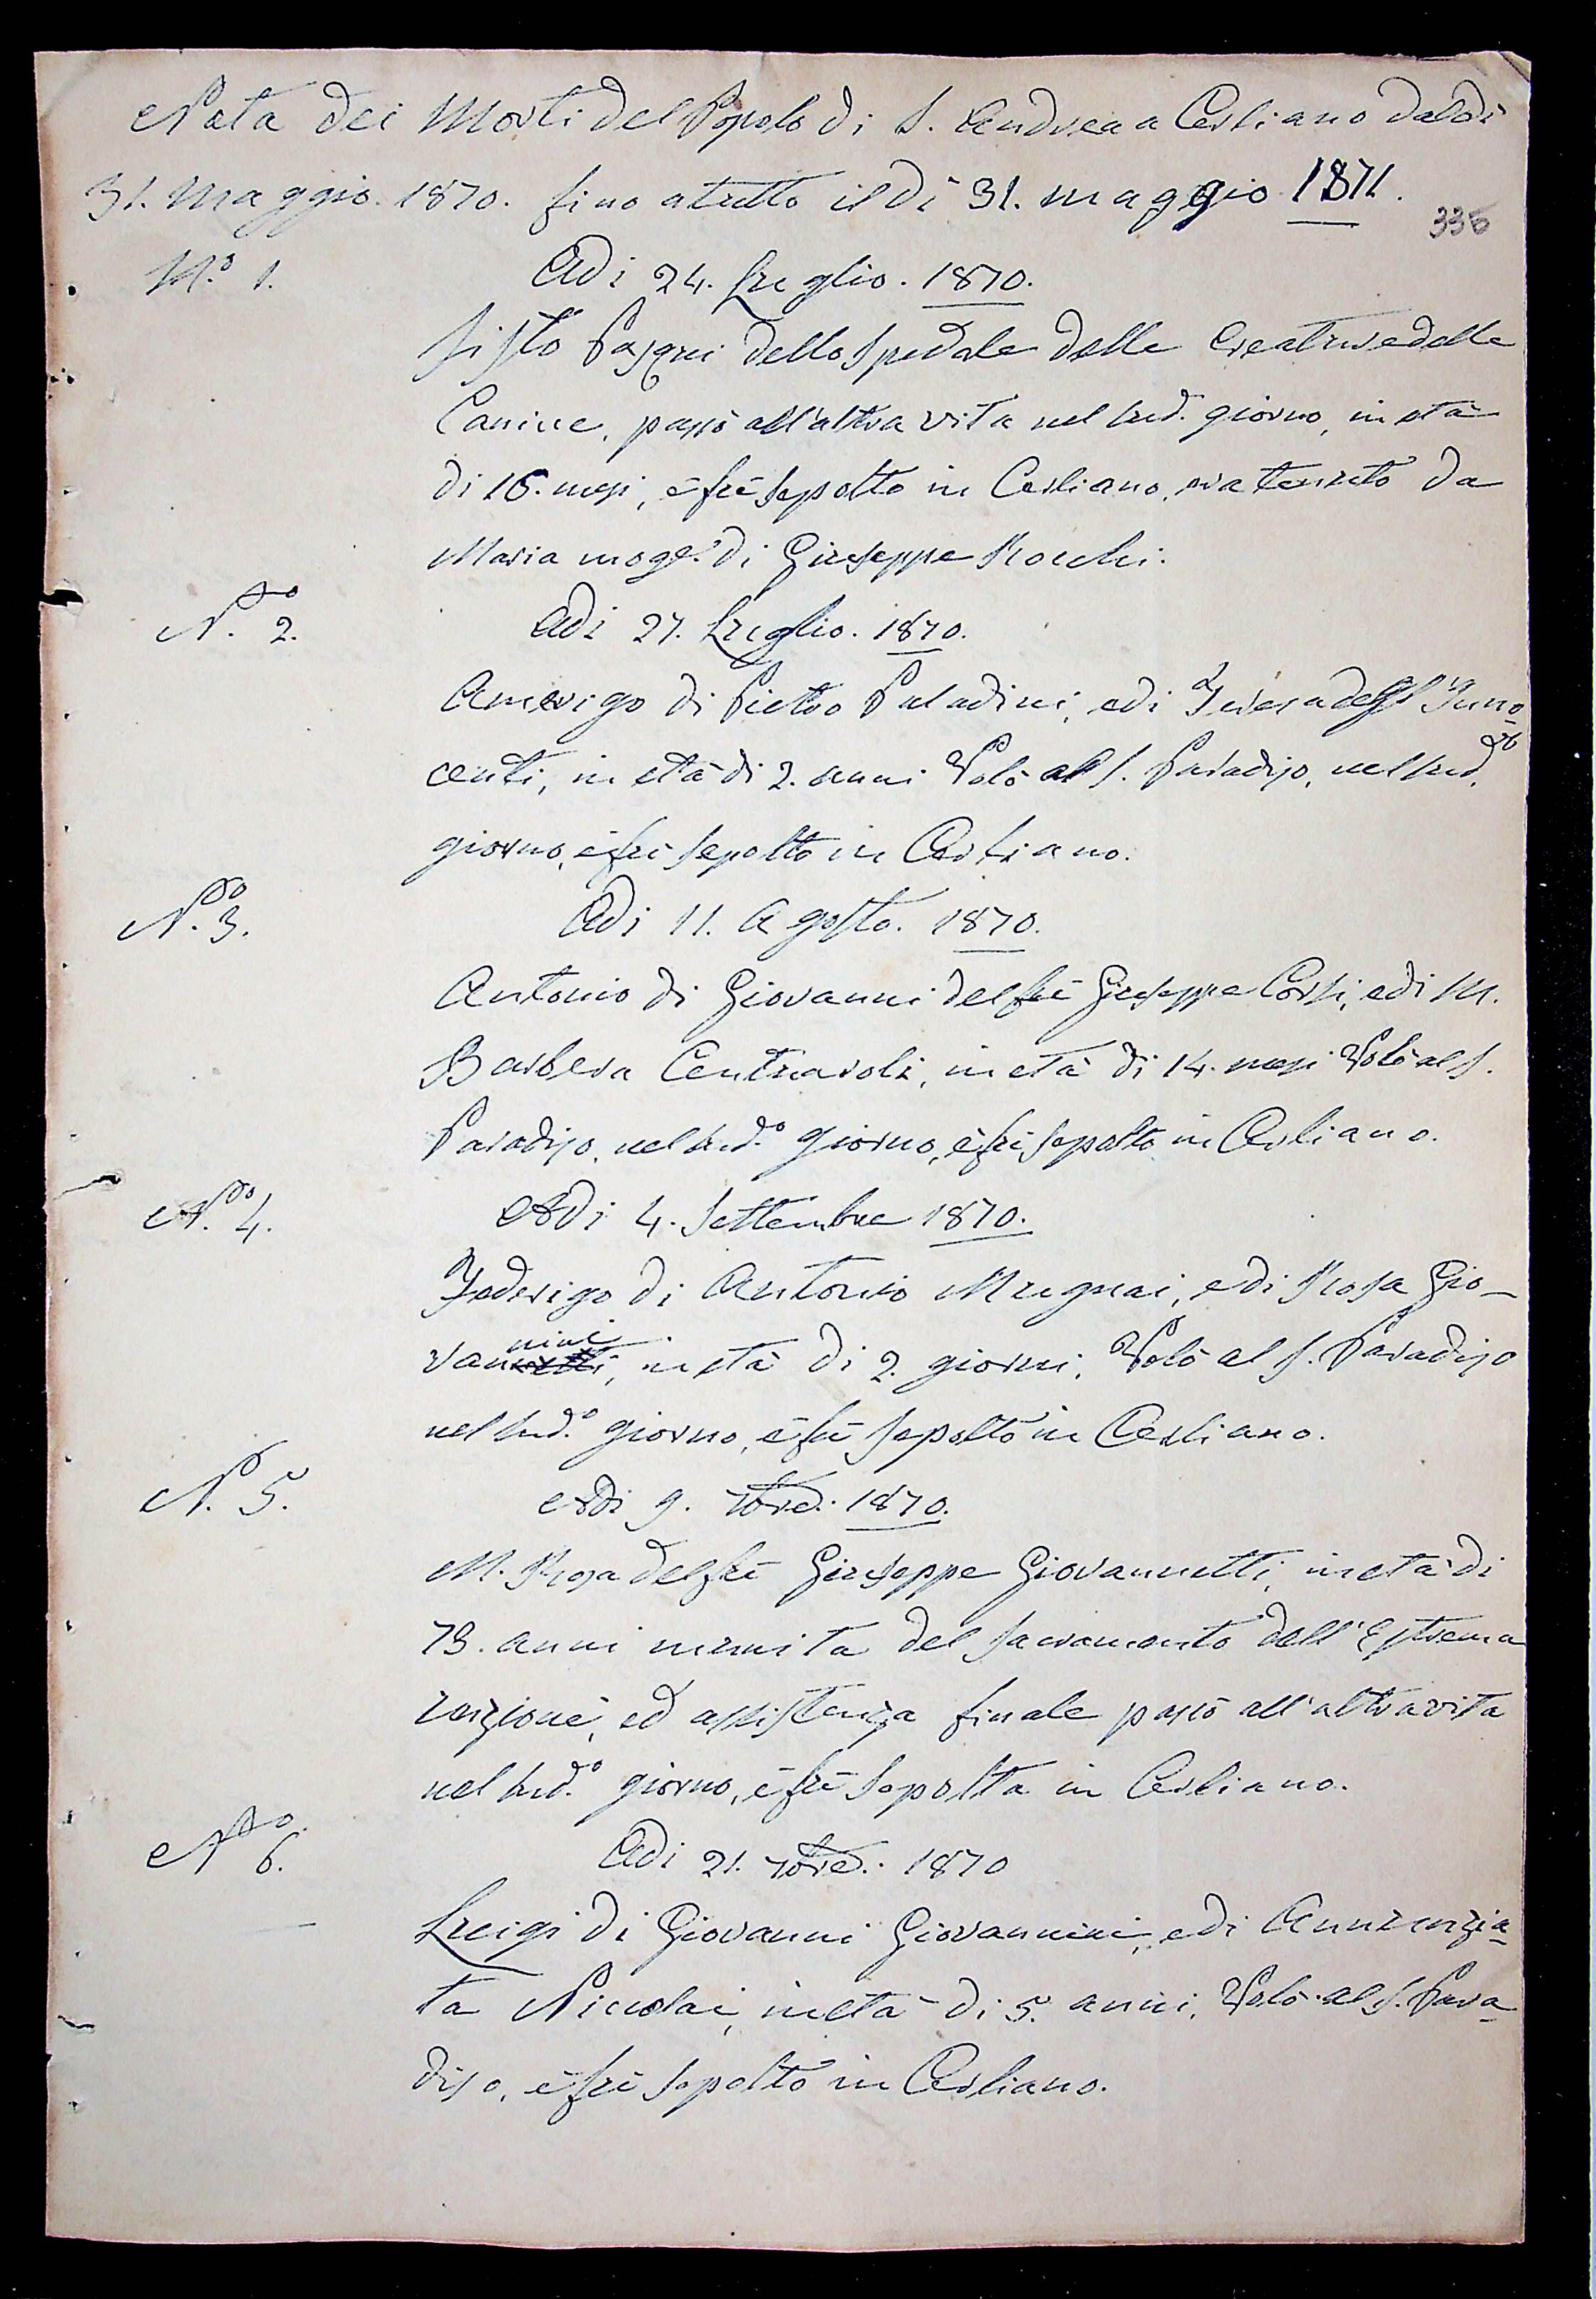 Nota dei Morti del Popolo di S. Andrea a Cerliano dal dì
31. Maggio. 1870. fino a tutto il dì 31. maggio 1871.
336
N.º 1. Adi 24. Luglio. 1870.
Sisto Pasqui dello Spedale delle Creature della
Canice, passò all'altra vita nel sud. giorno, in età
di 16. mesi, e fù sepolto in Cerliano, era tenuto da
Maria mog.e di Giuseppe Rocchi.
N. 2. Adi 27. Luglio. 1870.
Amerigo di Pietro Paladini, e di Teresa degl'Inno-
centi, in età di 2. anni Volò al S. Paradiso, nel sud.o
giorno, e fù sepolto in Cerliano.
N. 3. Adi 11. Agosto. 1870.
Antonio di Giovanni del fù Giuseppe Corsi, e di M.
Barbera in età di 14. mesi Volò al S.
Paradiso, nel sud.o giorno, e fù sepolto in Cerliano.
N. 4. Adi 4. Settembre 1870.
Federigo di Antonio Mugnai, e di Rosa Gio-
vannini, in età di 2. giorni, Volò al S. Paradiso
nel sud.o giorno, e fù sepolto in Cerliano.
N. 5. Adi 9. 7bre. 1870.
M. Rosa del fù Giuseppe Giovannetti, in età di
73. anni munita del Sacramento dell'Estrema
unzione, ed assistenza finale passò all'altra vita
nel sud.o giorno, e fù sepolta in Cerliano.
N 6. Adi 21. 7bre. 1870
Luigi di Giovanni Giovannini, e di Annunzia-
ta Niccolai, in età di 5. anni, Volò al S. Para-
diso, e fù sepolto in Cerliano.